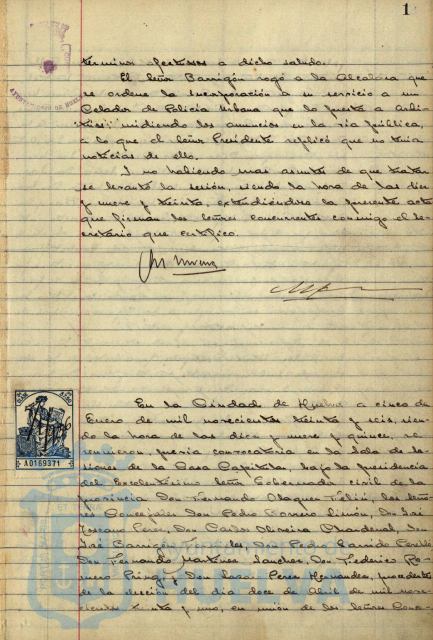 1
términos afectuosos a dicho saludo.
El Señor Barrigón rogó a la Alcaldía que
se ordene la incorporación a su servicio a un
Celador de Policía Urbana que lo presta a Arbi-
trios, midiendo los anuncios en la vía pública,
a lo que el Señor Presidente replicó que no tenía
noticias de ello.
Y no habiendo mas asuntos de que tratar
se levantó la sesión, siendo la hora de las diez
y nueve y treinta, extendiéndose la presente acta
que firman los señores concurrentes conmigo el Se-
cretario que certifico.
En la Ciudad de Huelva a cinco de
Enero de mil novecientos treinta y seis, sien-
do la hora de las diez y nueve y quince, se
reunieron previa convocatoria en la Sala de Se-
siones de la Casa Capitular, bajo la presidencia
del Excelentísimo Señor Gobernador civil de la
provincia Don Fernando Olaguer Feliú, los Seño-
res Concejales Don Pedro Borrero Limón, Don José
Toscano Perez, Don Carlos Oliveira Chardenal, Don
José Barrigón, Don Pedro Garrido Perelló
Don Fernando Martinez Sanchez, Don Federico Ro-
mero y Don Perez Hernandez, procedentes
de la elección del día doce de Abril de mil nove-
cientos treinta y uno, en unión de los Señores Conce-
A0169371